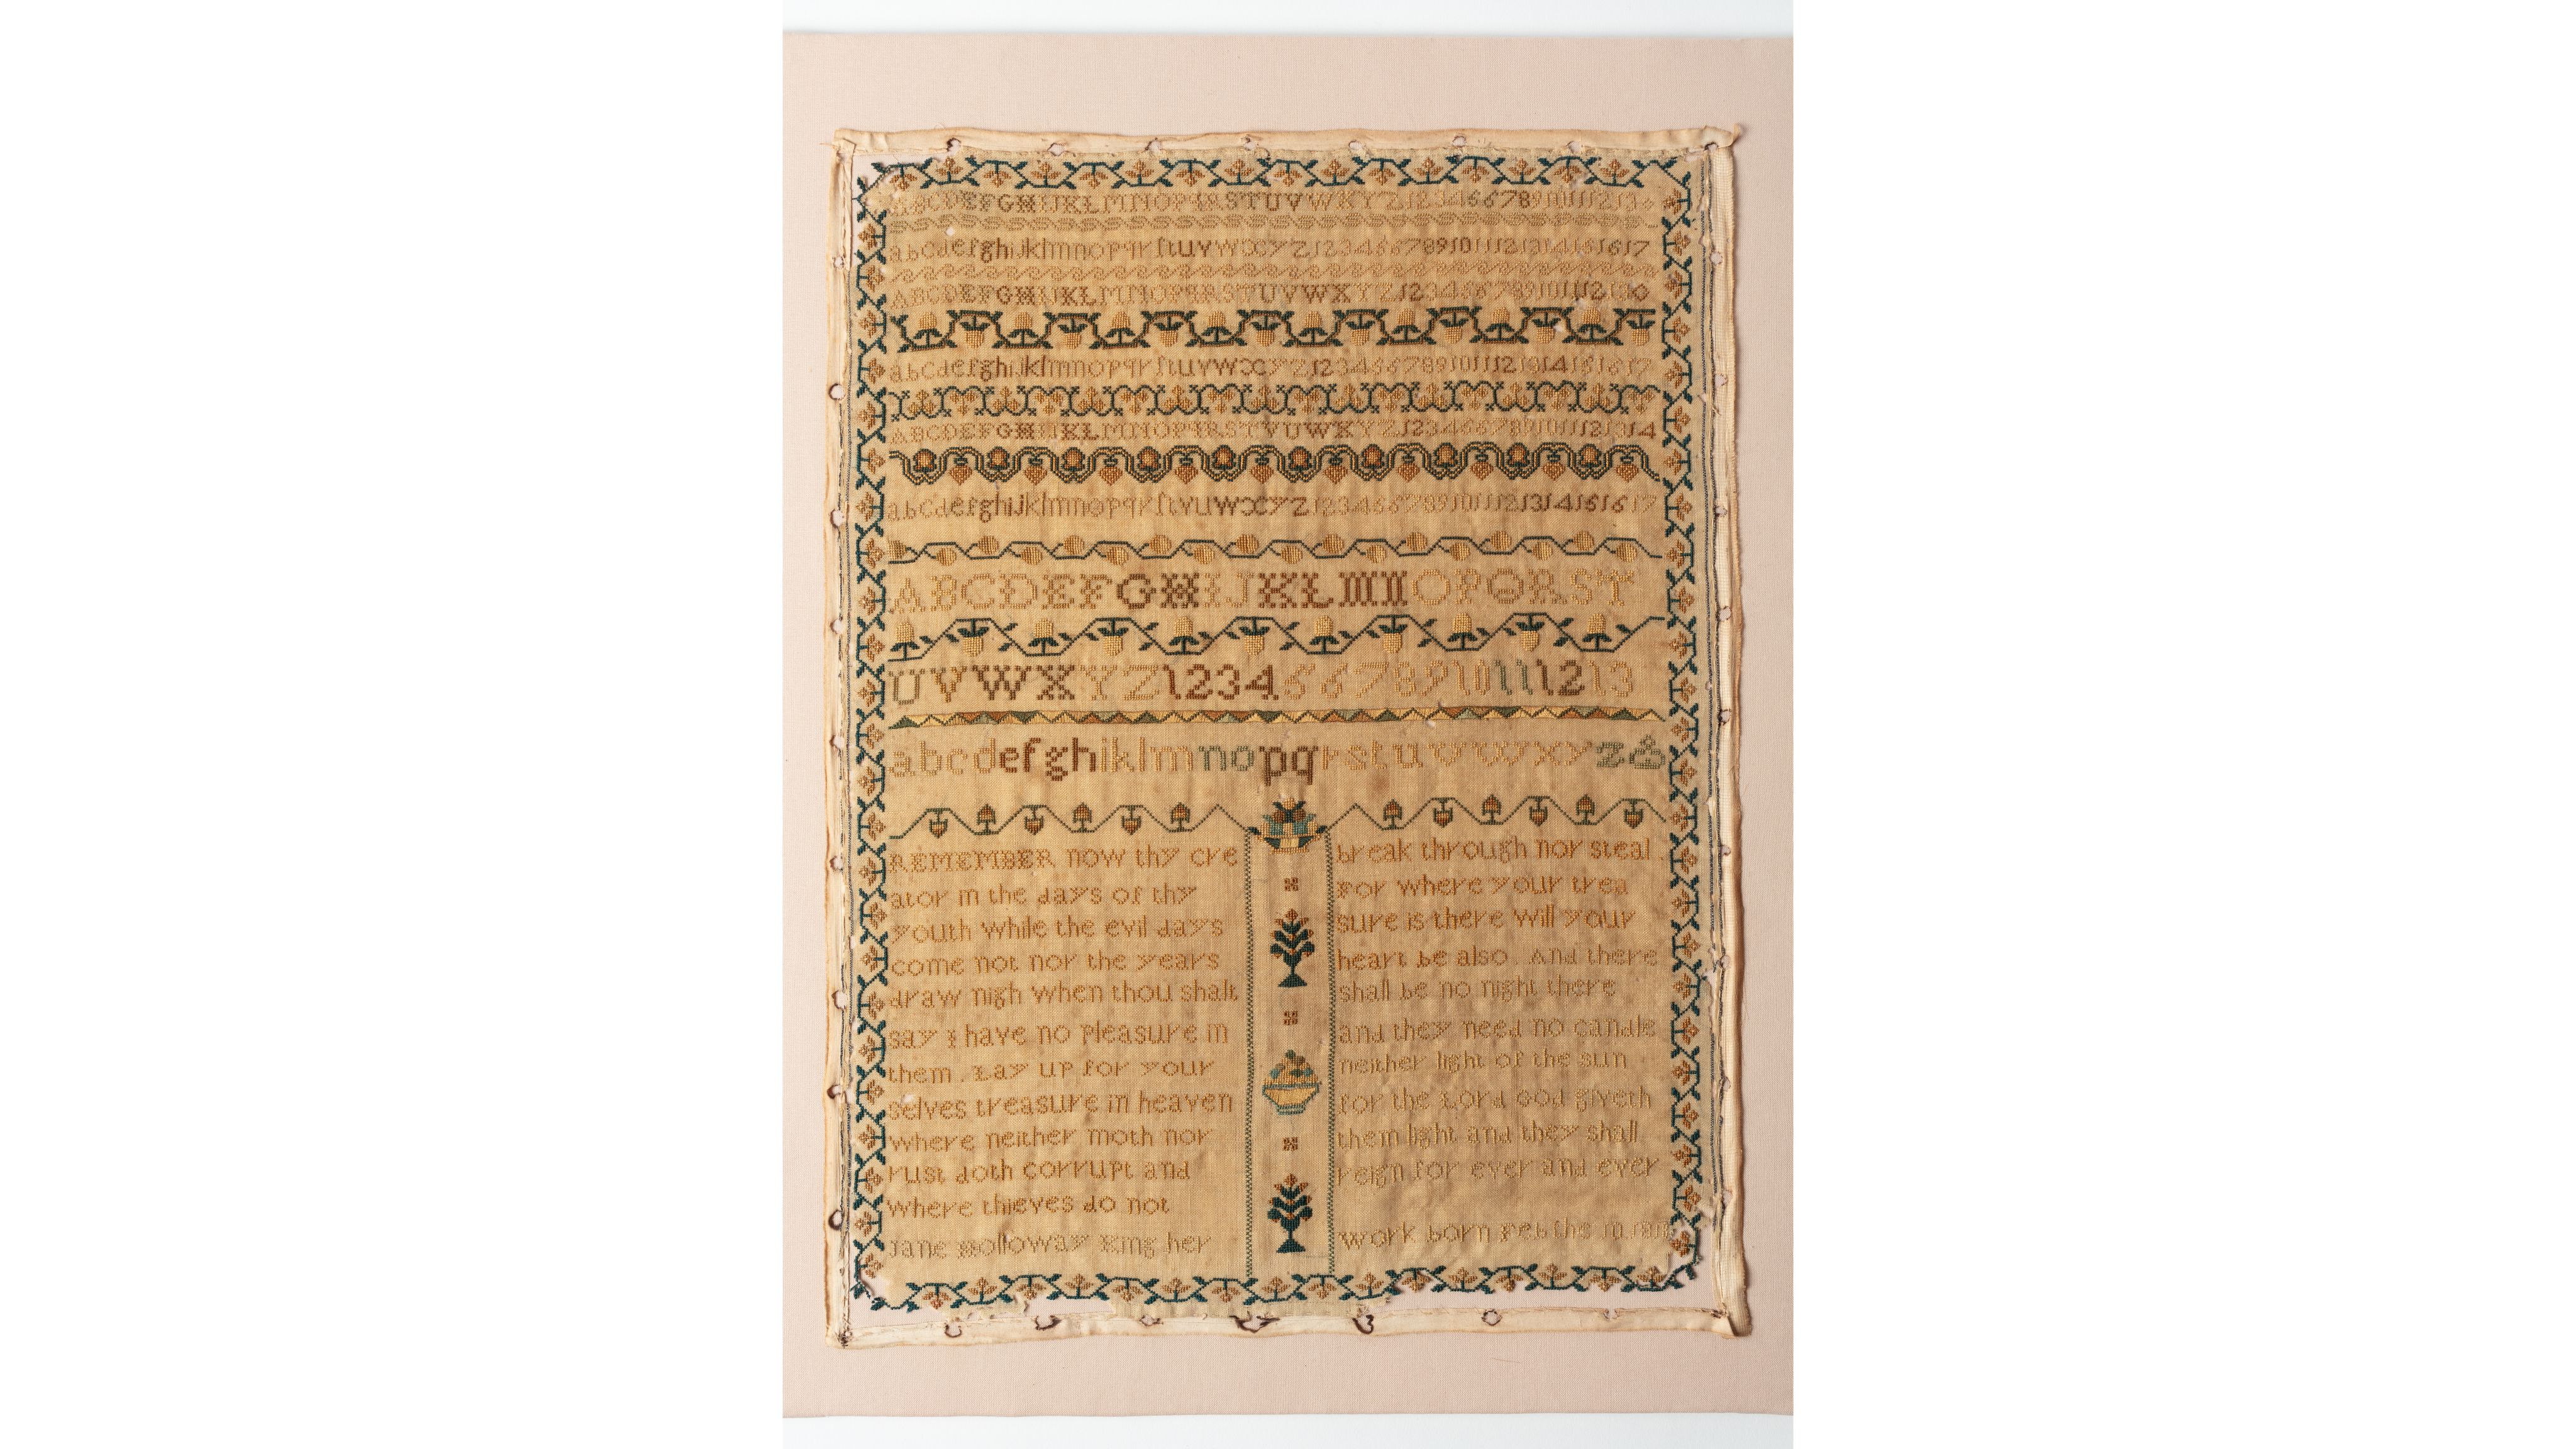 ABCDEFGHIJKLMNOPQRSTUVWXYZ12345678910111213
abcdefghijklmnopqrſtuvwxyz1234567891011121314151617
ABCDEFGHIJKLMNOPQRSTUVWXYZ12345678910111213
abcdefghijklmnopqrſtuvwxyz1234567891011121314151617
ABCDEFGHIJKLMNOPQRSTVUWXYZ1234567891011121314
abcdefghijklmnopqrſtvuwxyz1234567891011121314151617
ABCDEFGHIJKLMNOPQRST
UVWXYZ12345678910111213
abcdefghiklmnopqrstuvwxyz&
REMEMBER now thy cre
ator in the days of thy
youth while the evil days
come not nor the years
draw nigh when thou shalt
say I have no Pleasure in
them . Lay up for your
selves treasure in heaven
where neither moth nor
rust doth corrupt and
where thieves do not
break through nor steal .
For where your trea
sure is there will your
heart be also . And there
shall be no night there
and they need no candle
neither light of the sun
for the Lord God giveth
them light and they shall
reign for ever and ever
Jane Holloway King her
work born Feb the